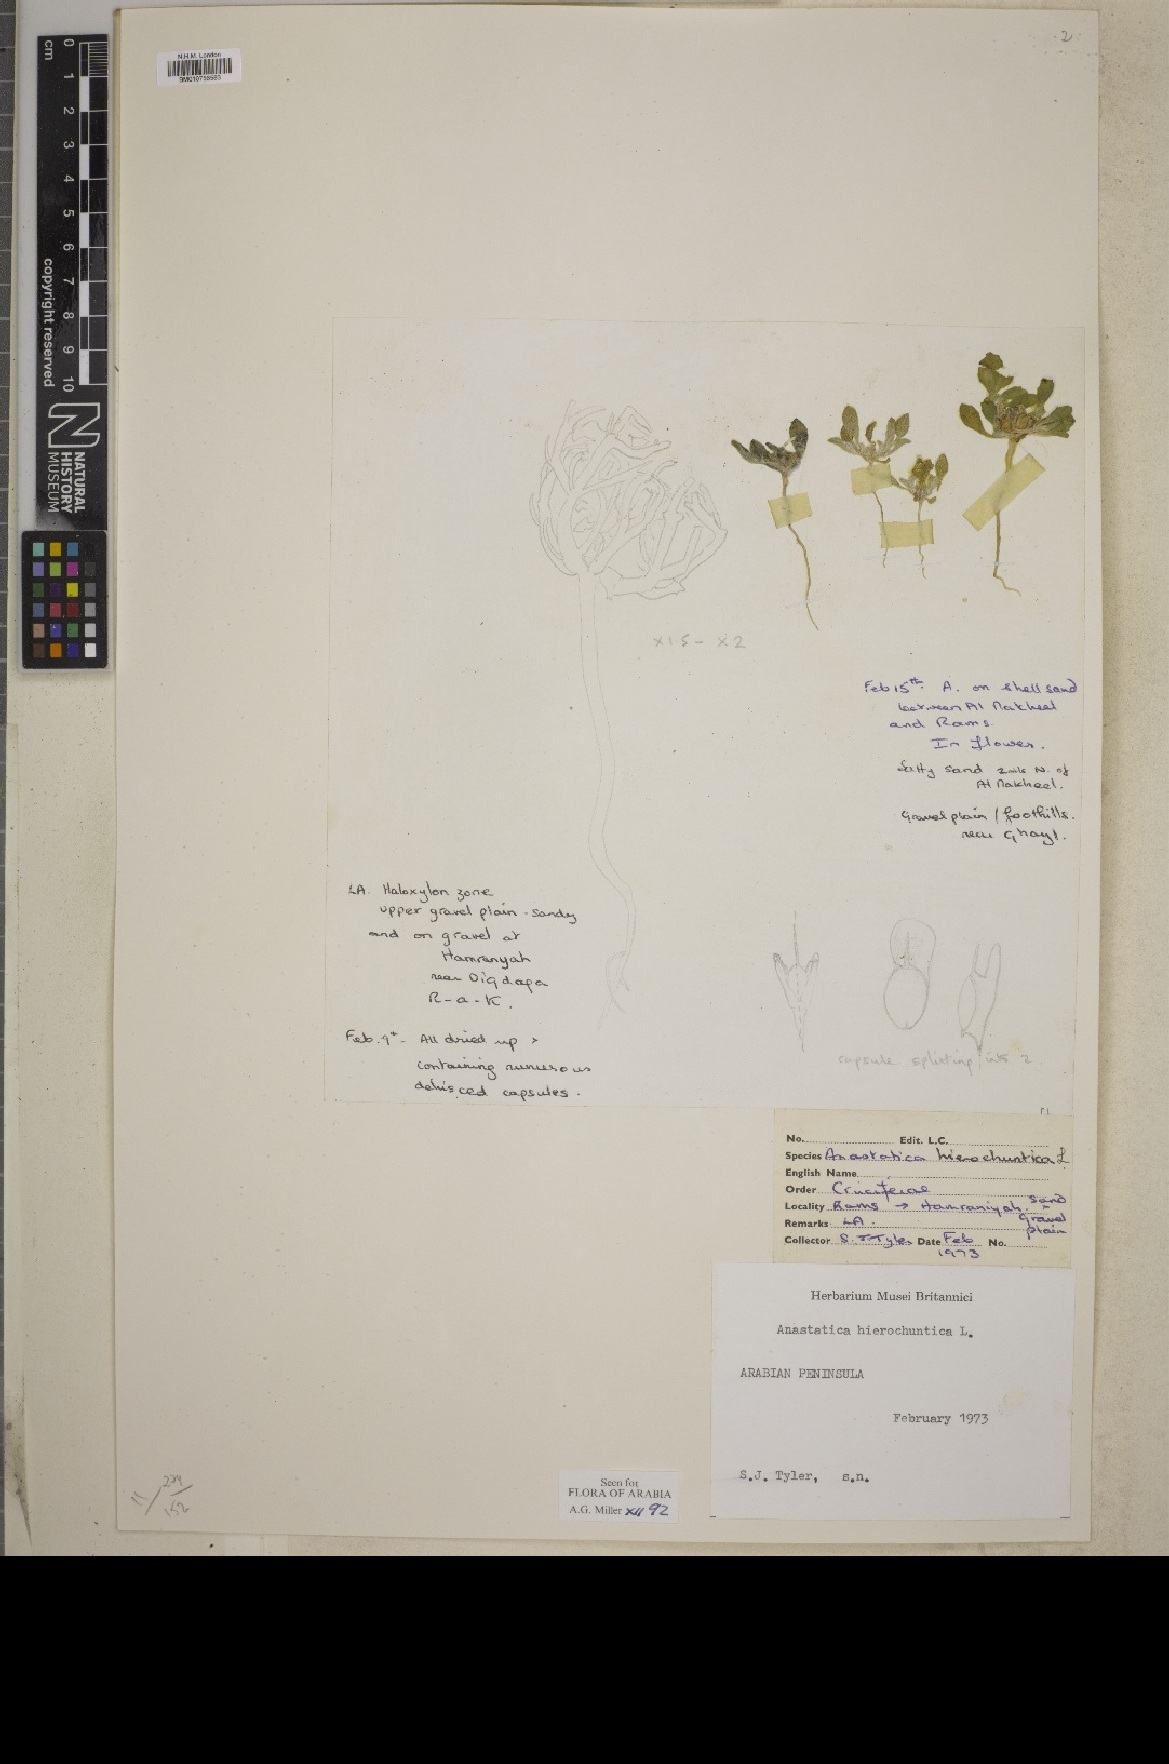 2
N.H.M. London
cm
0
1
2
3
4
5
6
7
8
9
10
copyright reserved
NATURAL
HISTORY
MUSEUM
x1.5 - x2
Feb 15th. A. on shell sand
between Al Nakheel
and Rams.
In flower.
Salty sand 2 mls N. of
Al Nakheel.
Gravel plain / foothills.
near Ghayl.
LA. Haloxylon zone
upper gravel plain - sandy
and on gravel at
Hamranyah
near Digdaga
R-a-K.
Feb. 9th - All dried up &
containing numerous
dehisced capsules.
capsule splitting into 2
No. Edit. L.C.
Species Anastatica hierochuntica L
English Name
Order Cruciferae
Locality Rams → Hamraniyah. Sand -
Gravel
plain
Remarks LA.
Collector S. J. Tyler Date Feb No.
1973
Herbarium Musei Britannici
Anastatica hierochuntica L.
ARABIAN PENINSULA
February 1973
S.J. Tyler, s.n.
Seen for
FLORA OF ARABIA
A.G. Miller XII 92
11 / 152